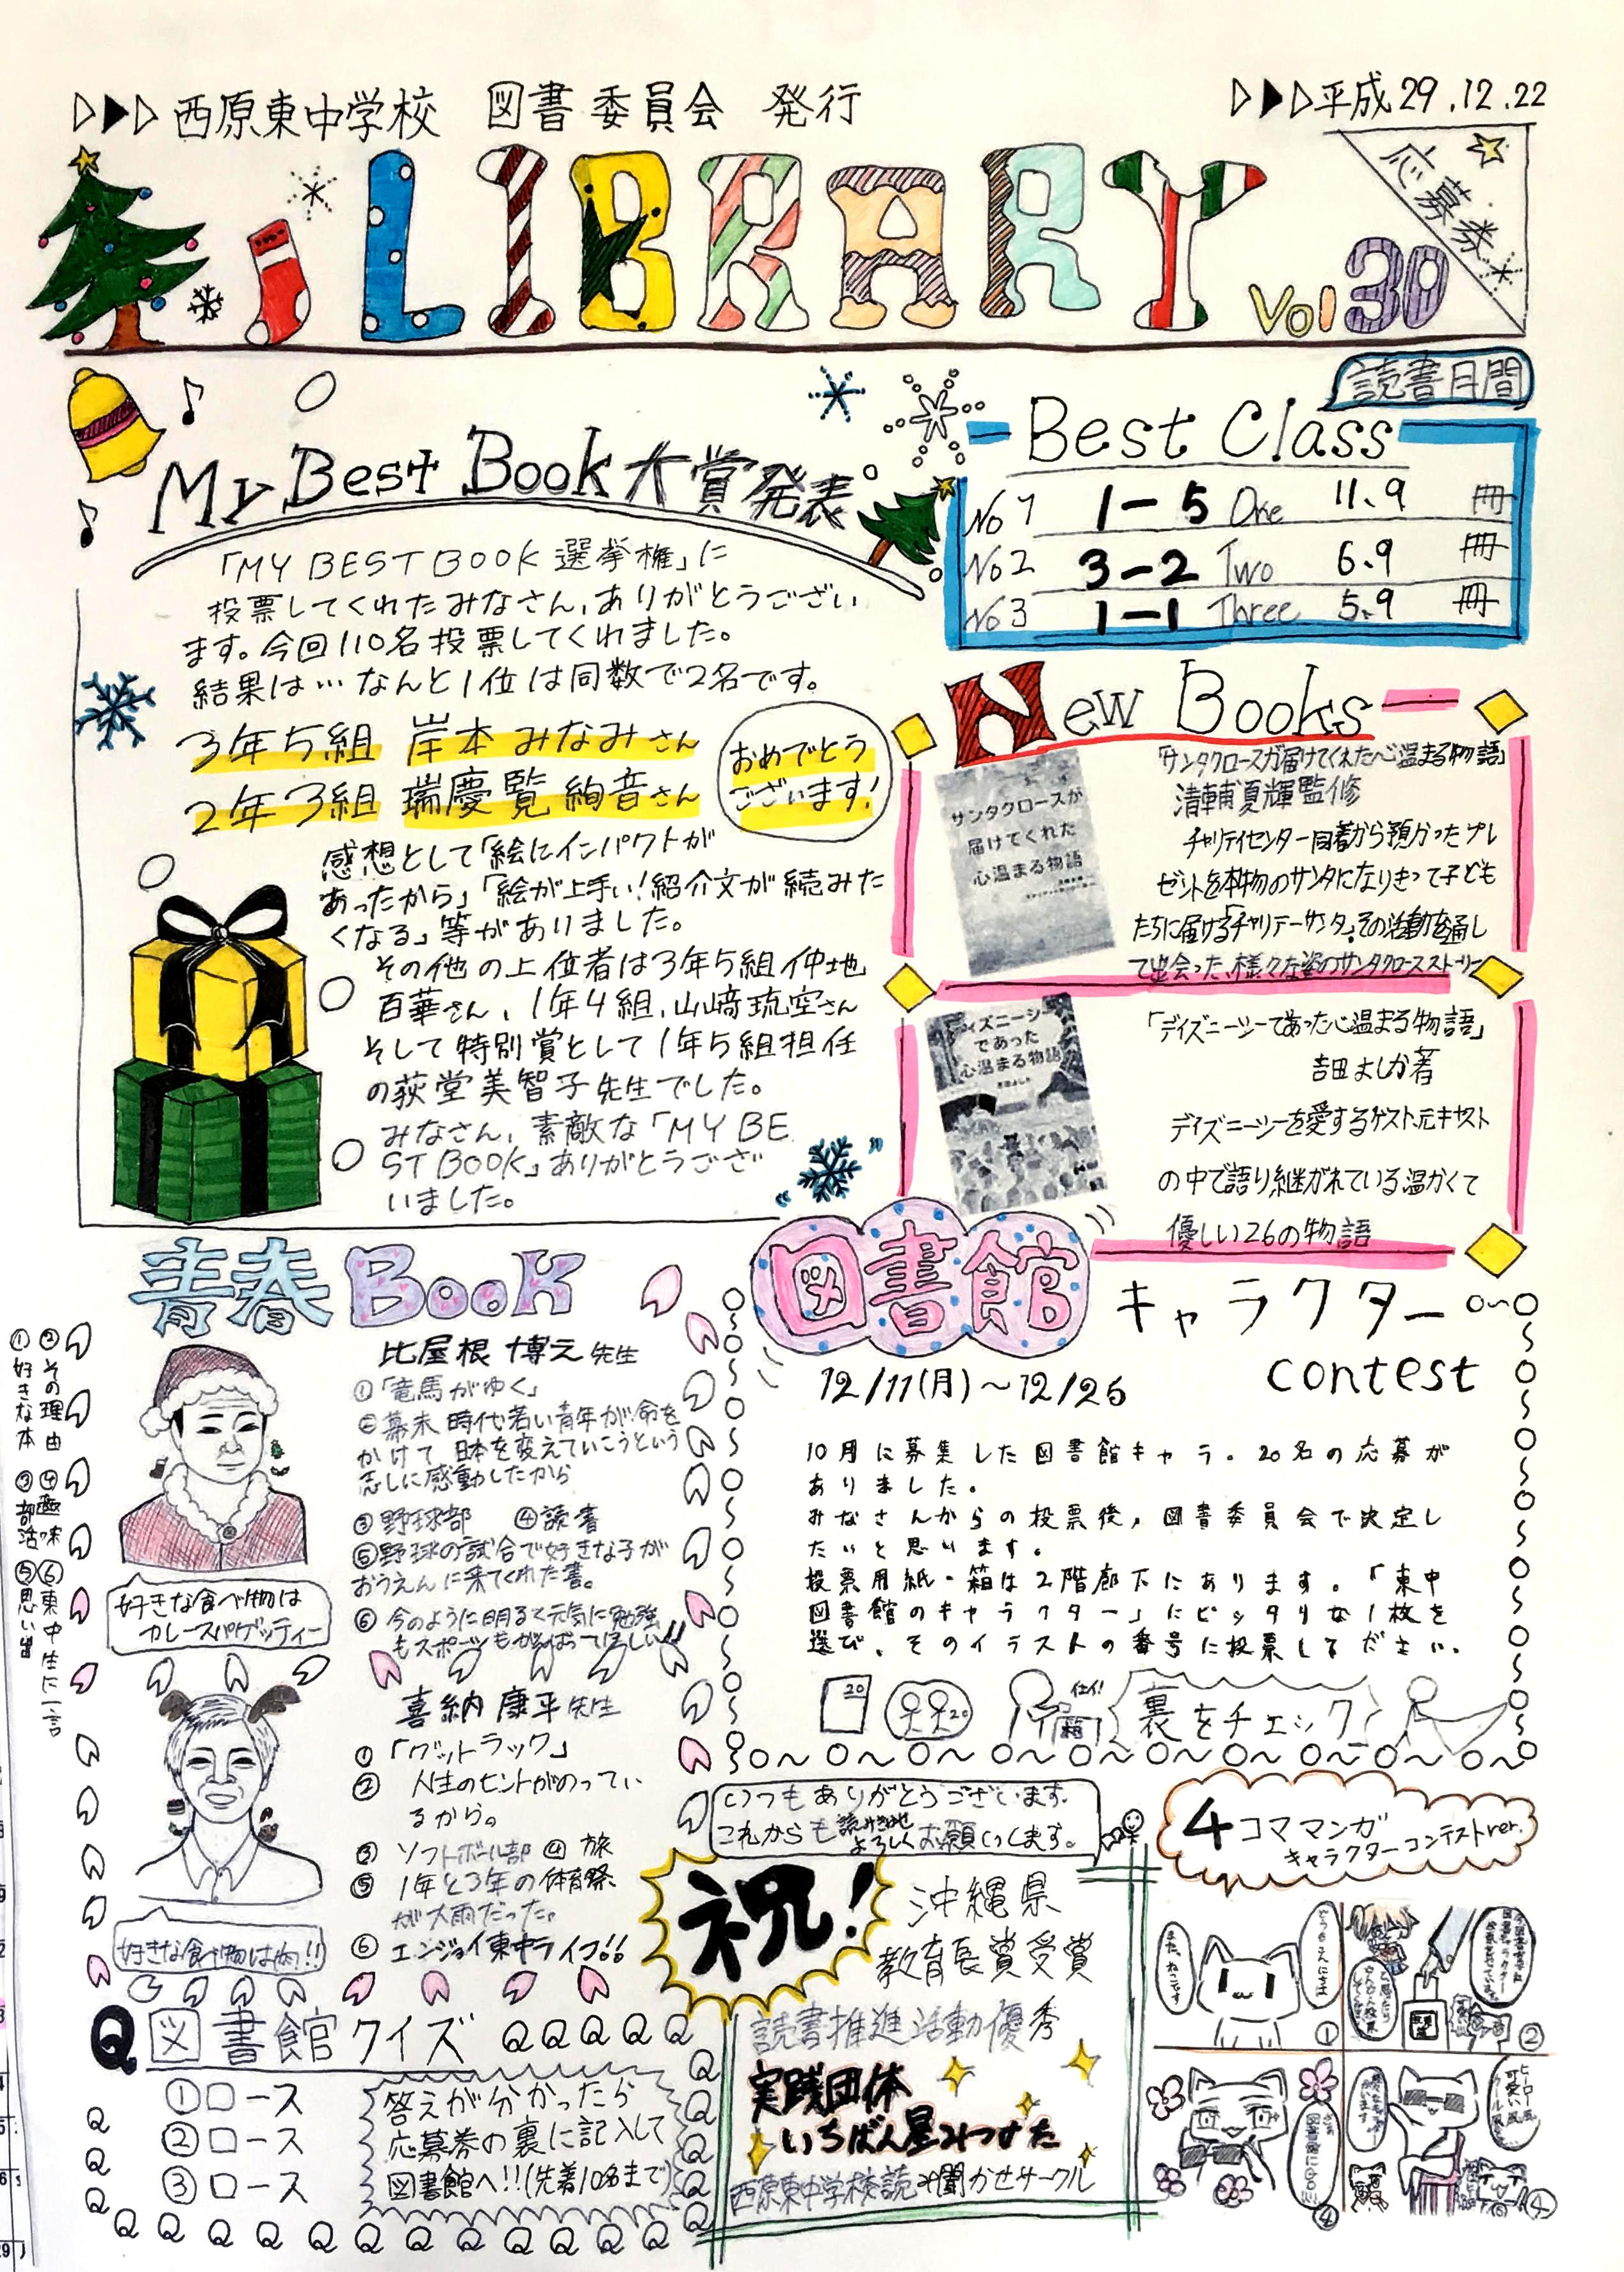 西原東中学校 図書委員会 発行
平成29.12.22
応募券
LIBRARY Vol 30
My Best Book 大賞発表
「MY BEST BOOK 選挙権」に
投票してくれたみなさん、ありがとうござい
ます。今回110名投票してくれました。
結果は…なんと1位は同数で2名です。
3年5組 岸本みなみさん
2年3組 瑞慶覧 絢音さん
おめでとう
ございます!
感想として「絵にインパクトが
あったから」「絵が上手い!紹介文が続みた
くなる」等がありました。
その他の上位者は3年5組仲地
百華さん、1年4組、山﨑琉空さん
そして特別賞として1年5組担任
の荻堂美智子先生でした。
みなさん、素敵な「MY BE
ST BOOK」ありがとうござ
いました。
読書月間
Best Class
No 1 1-5 One 11.9 冊
No 2 3-2 Two 6.9 冊
No 3 1-1 Three 5.9 冊
New Books
サンタクロースが
届けてくれた
心温まる物語
「サンタクロースが届けてくれた心温まる物語」
清輔夏輝監修
チャリティセンター同着から預かったプレ
ゼントを本物のサンタになりきって子ども
たちに届ける「チャリテーサンタ」その活動を通し
て出会った、様々な姿のサンタクロースストーリー
ディズニーシー
であった
心温まる物語
「ディズニーシーであった心温まる物語」
吉田よしか著
ディズニーシーを愛するゲスト、元キャスト
の中で語り継がれている温かくて
優しい26の物語
青春Book
①好きな本
②その理由
③部活
④趣味
⑤思い出
⑥東中生に一言
比屋根 博之先生
①「竜馬がゆく」
②幕末時代若い青年が命を
かけて日本を変えていこうという
志しに感動したから
③野球部 ④読書
⑤野球の試合で好きな子が
おうえんに来てくれた事。
⑥今のように明るく元気に勉強
もスポーツもがんばってほしい!!
好きな食べ物は
カレースパゲッティー
喜納 康平先生
①「グットラック」
② 人生のヒントがのってい
るから。
③ ソフトボール部 ④ 旅
⑤ 1年と3年の体育祭
が大雨だった。
⑥ エンジョイ東中ライフ!!
好きな食べ物は肉!!
図書館
キャラクター
contest
12/11(月)~12/25
10月に募集した図書館キャラ。20名の応募が
ありました。
みなさんからの投票後、図書委員会で決定し
たいと思います。
投票用紙・箱は2階廊下にあります。「東中
図書館のキャラクター」にピッタリな1枚を
選び、そのイラストの番号に投票してください。
20
箱
裏をチェック
いつもありがとうございます。
これからも読み聞かせ
よろしくお願いします。
祝!
沖縄県
教育長賞受賞
読書推進活動優秀
実践団体
いちばん星みつけた
西原東中学校読み聞かせサークル
4コママンガ
キャラクターコンテストver.
①
②
Q図書館クイズ QQQQQ
①ロース
②ロース
③ロース
答えが分かったら
応募券の裏に記入して
図書館へ!!(先着10名まで)